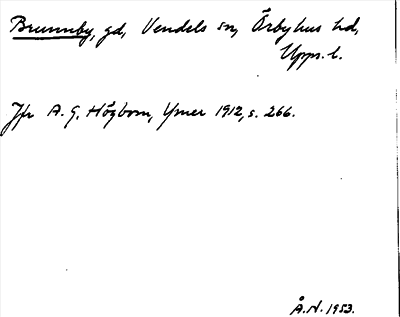 Brunnby, gd, Vendels sn, Örbyhus hd,
Upps. l.
Jfr A. G. Högbom, Ymer 1912, s. 266.
Å.N. 1953.